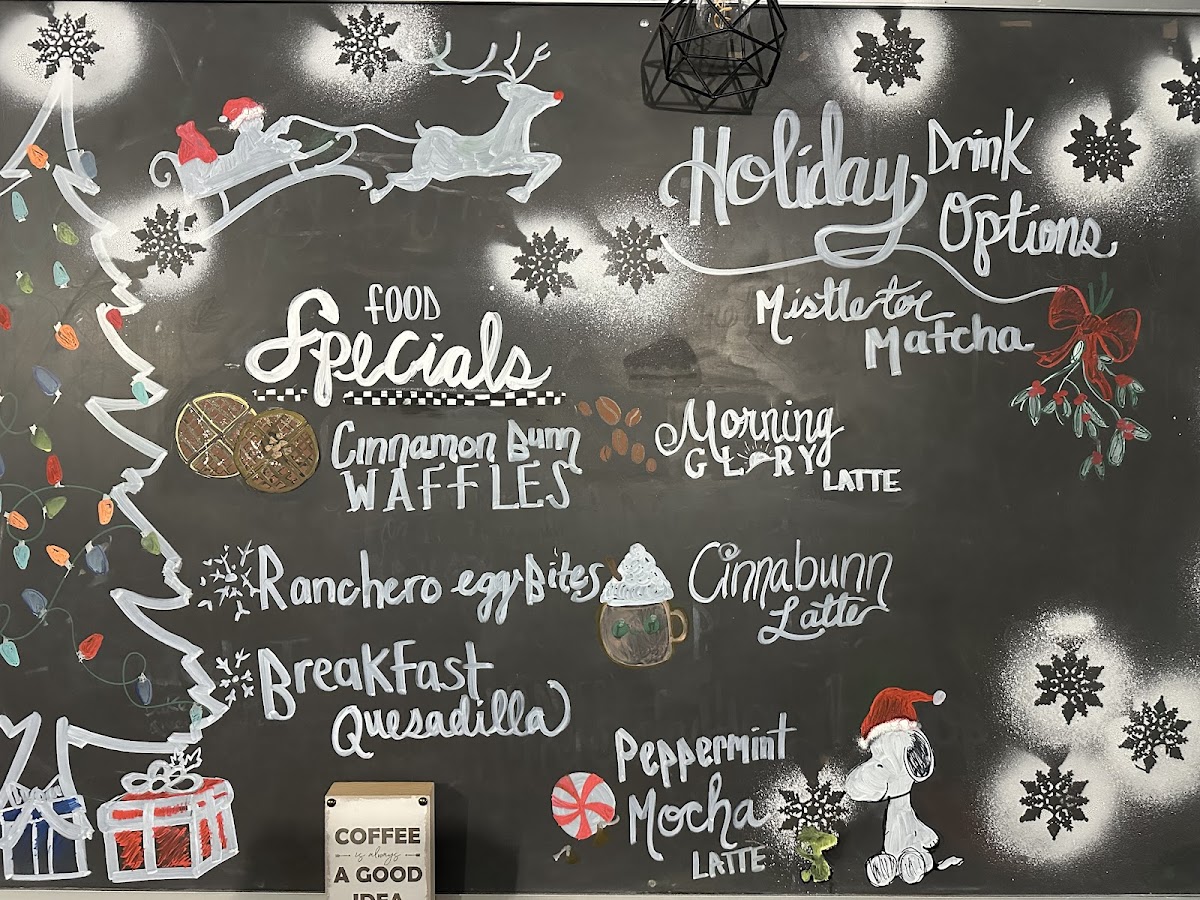 Holiday Drink
Options
Mistletoe
Matcha
FOOD
Specials
Cinnamon Bunn
WAFFLES
Morning
GLORY
LATTE
Ranchero egg Bites
Cinnabunn
Latte
Breakfast
Quesadilla
Peppermint
Mocha
LATTE
COFFEE
is always
A GOOD
IDEA